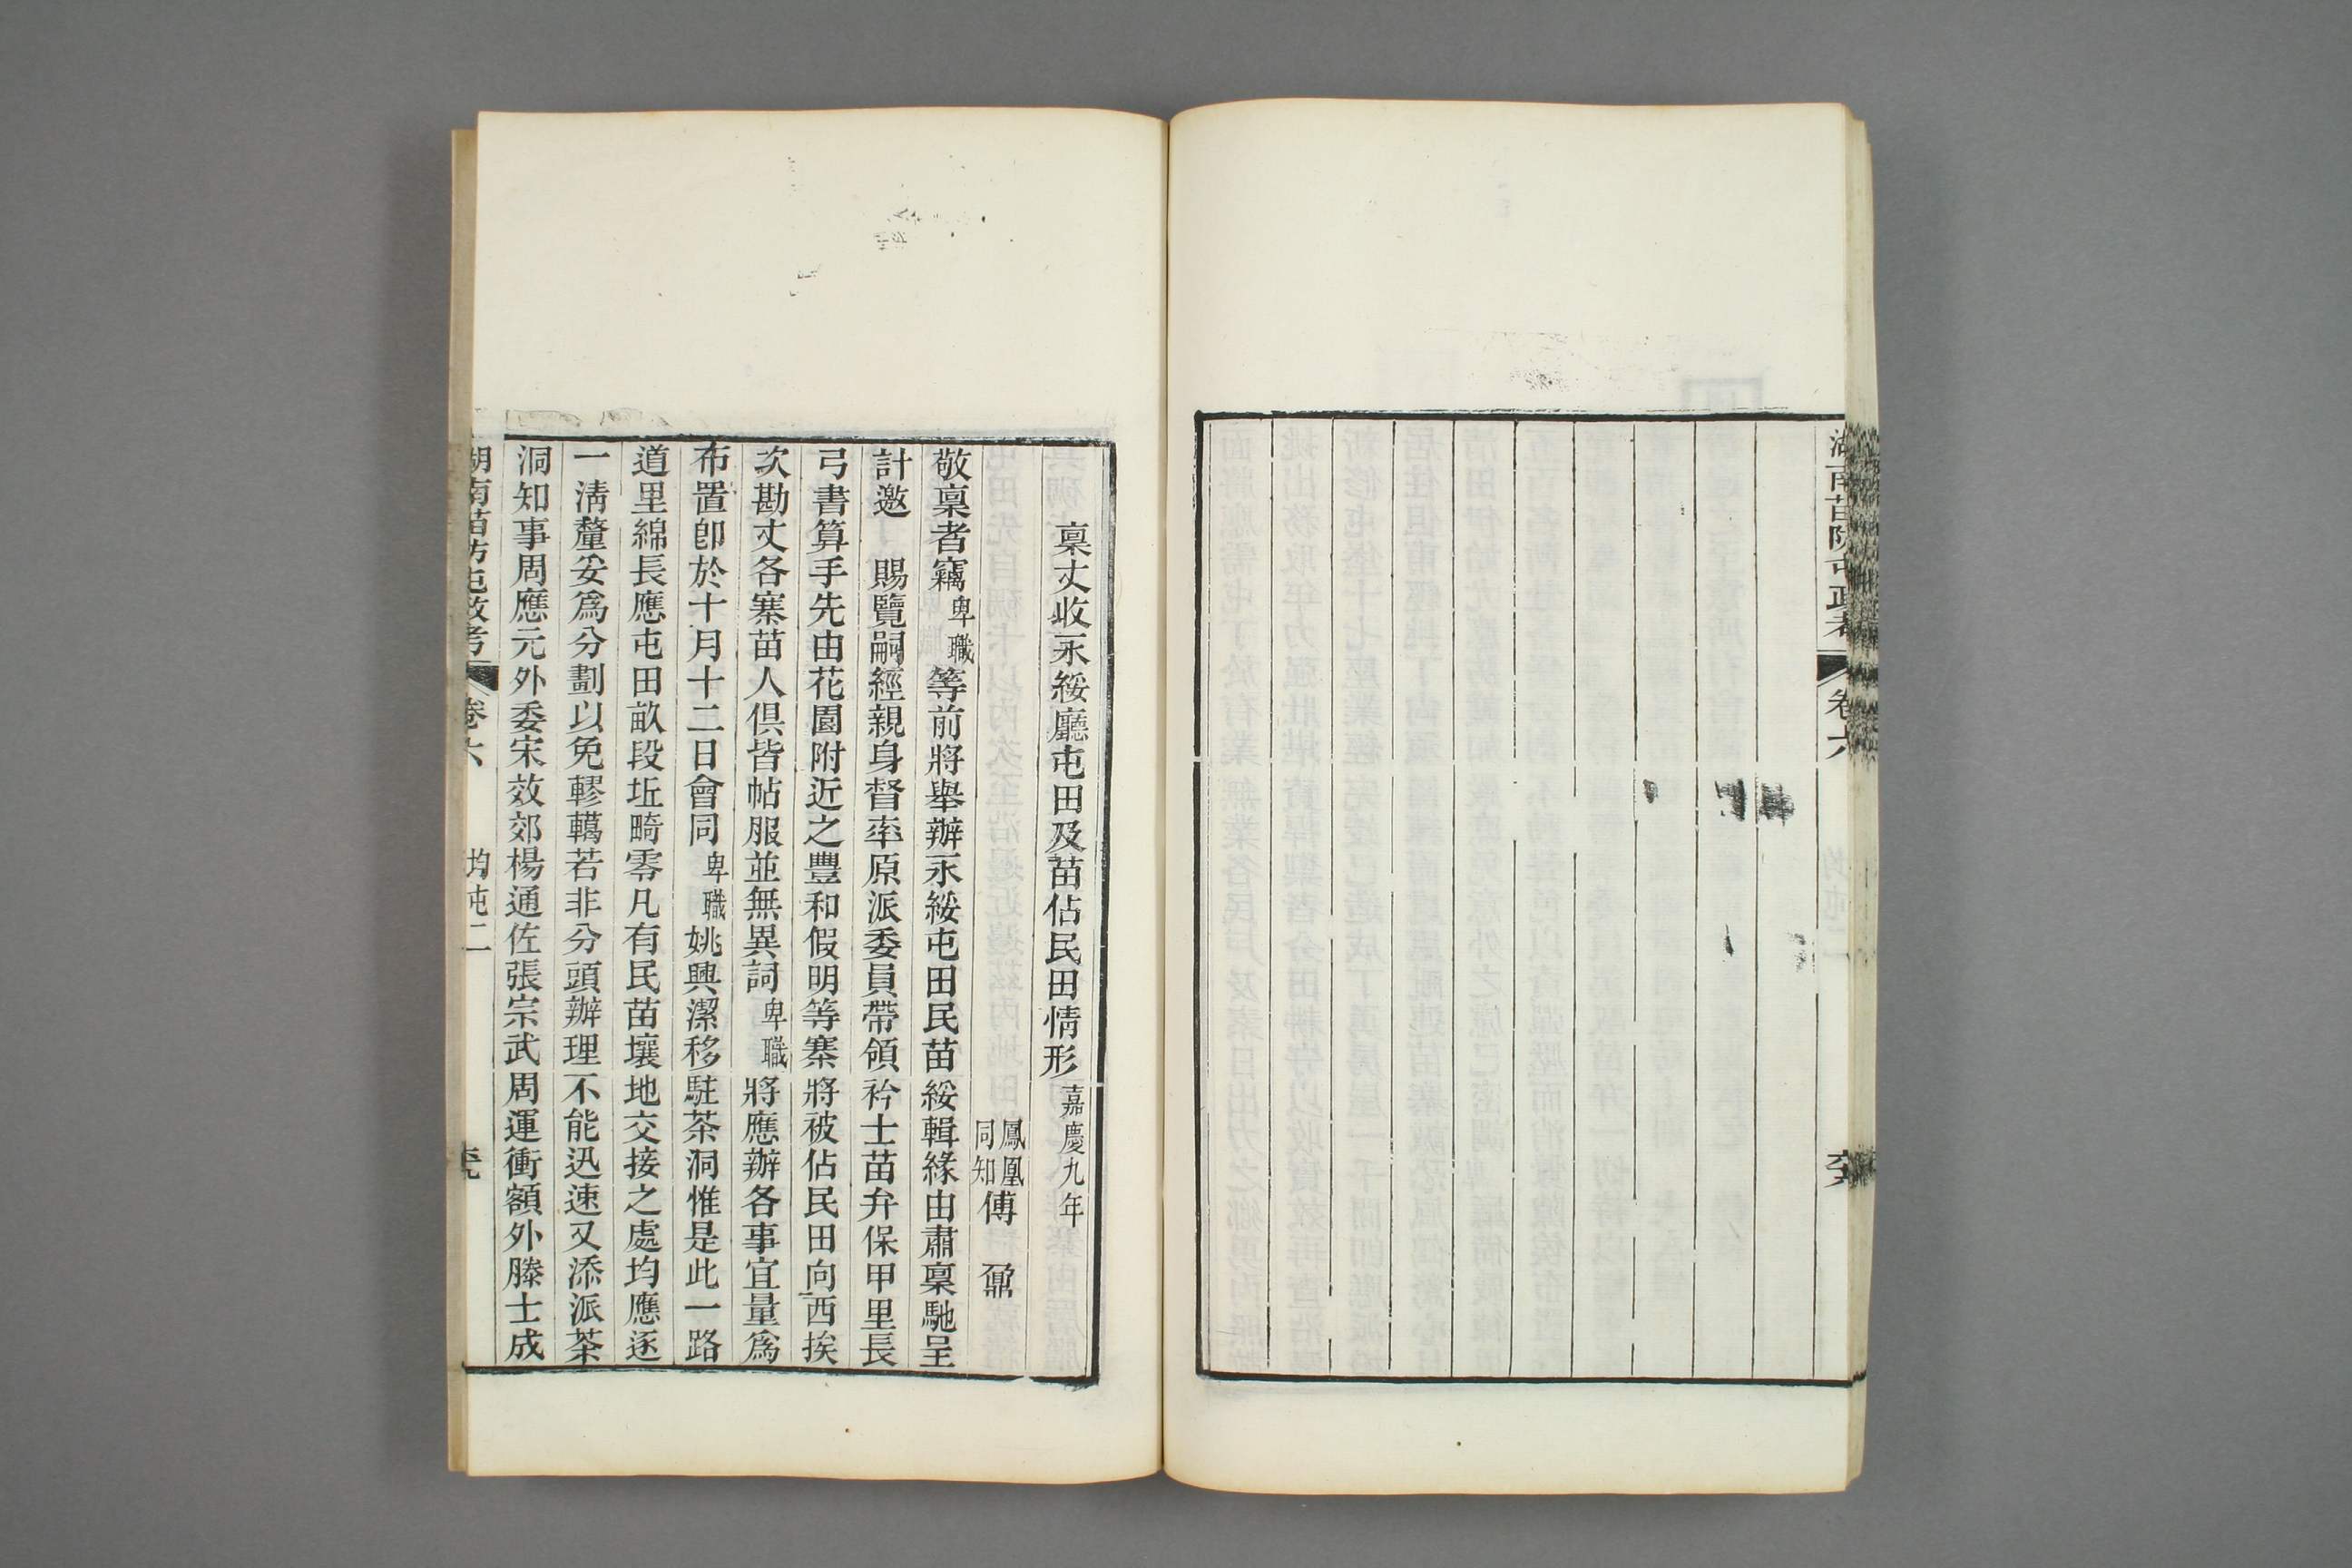 湖南苗防屯政考
卷六
稟丈收永綏廳屯田及苗佔民田情形嘉慶九年
鳳凰同知傅鼐
敬稟者竊卑職等前將舉辦永綏屯田民苗綏輯緣由肅稟馳呈
計邀　賜覽嗣經親身督率原派委員帶領衿士苗弁保甲里長
弓書算手先由花園附近之豐和假明等寨將被佔民田向西挨
次勘丈各寨苗人俱皆帖服並無異詞卑職將應辦各事宜量為
布置卽於十月十二日會同卑職姚興潔移駐茶洞惟是此一路
道里綿長應屯田畝段坵畸零凡有民苗壤地交接之處均應逐
一清釐妥爲分劃以免轇轕若非分頭辦理不能迅速又添派茶
洞知事周應元外委宋效郊楊通佐張宗武周運衝額外滕士成
湖南苗防屯政考
卷六
均屯二